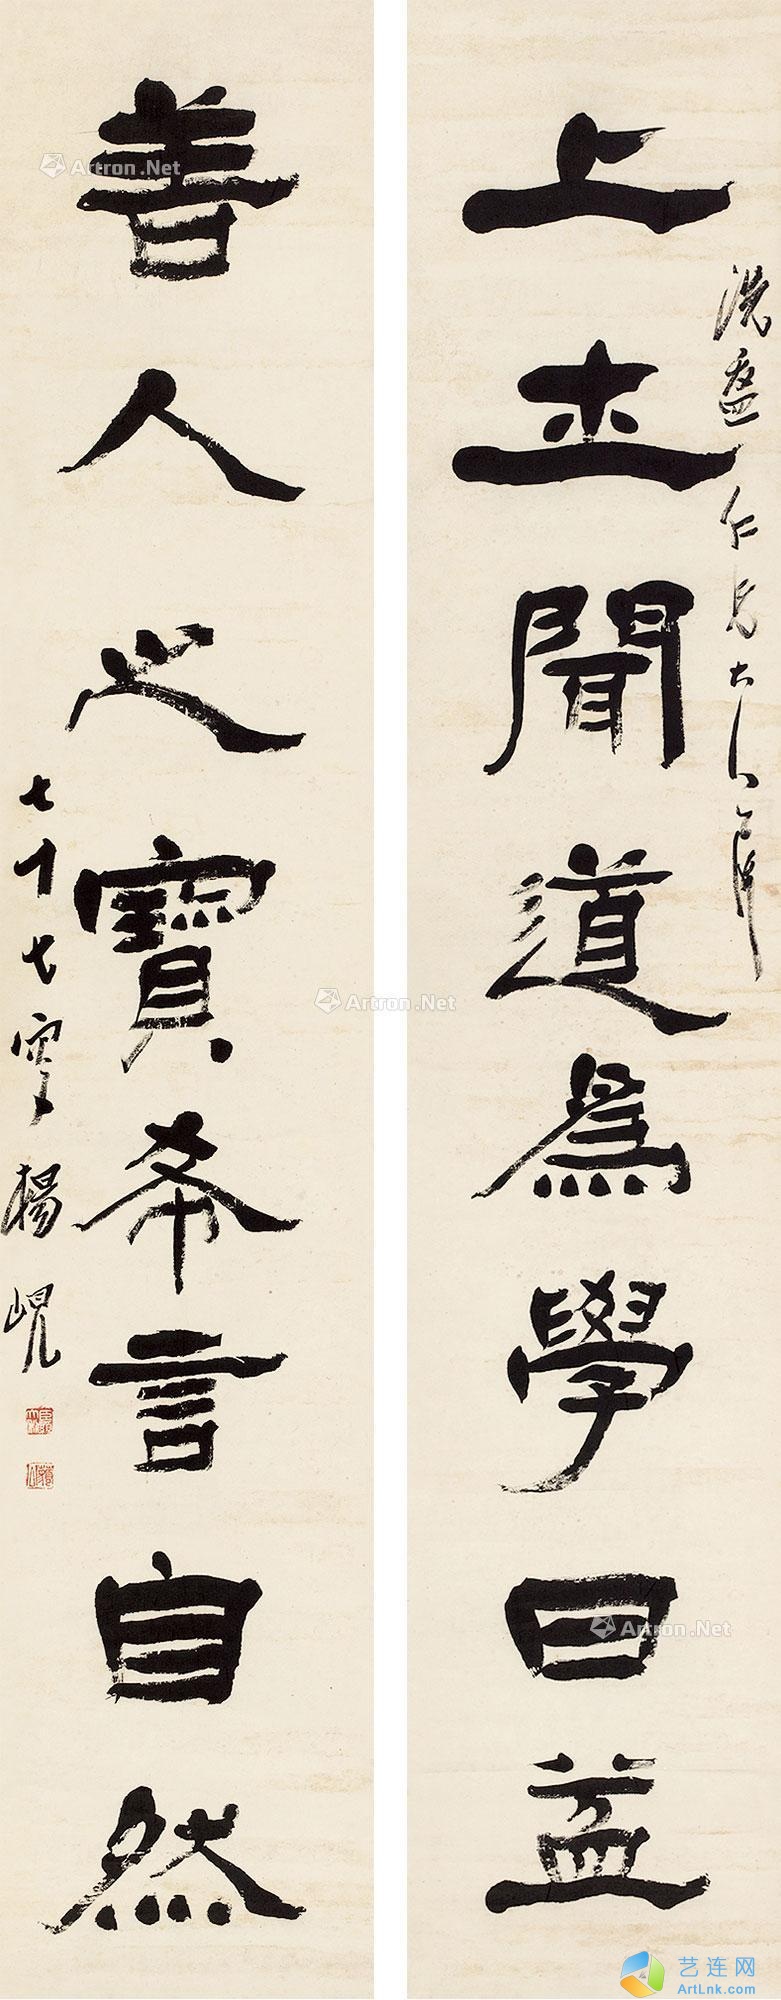 上士聞道為學日益
洗盦仁兄大人屬
善人之寶希言自然
七十七叟楊峴
Artron.Net
Artron.Net
Artron.Net
艺连网
ArtLnk.com